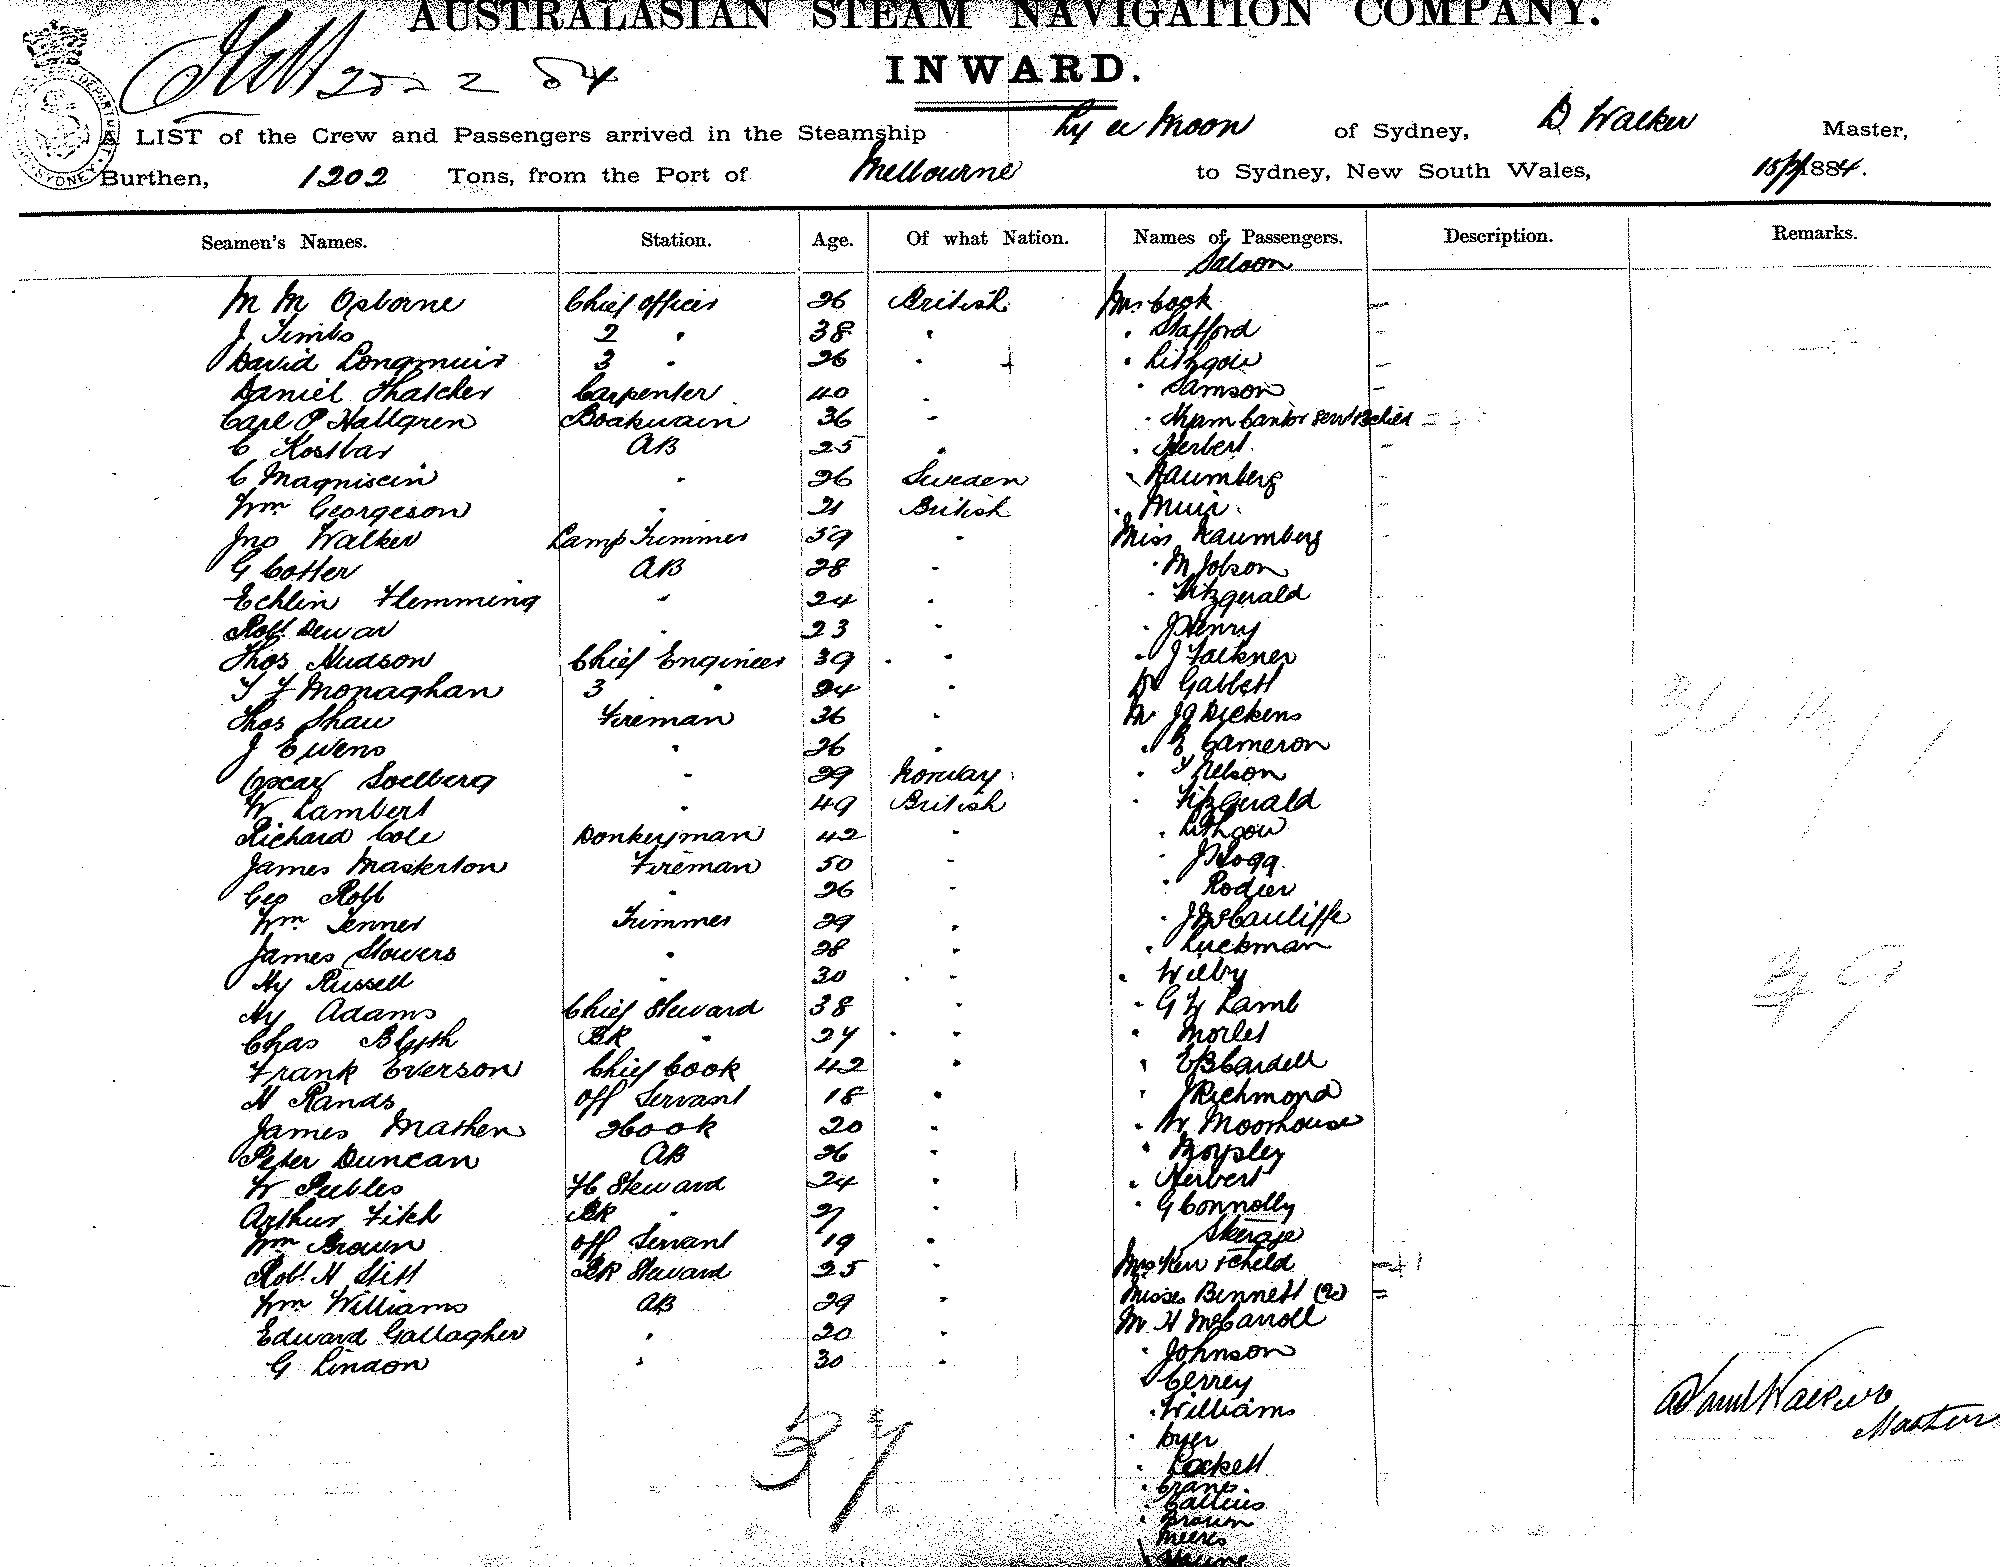 AUSTRALASIAN STEAM NAVIGATION COMPANY.
INWARD.
A LIST of the Crew and Passengers arrived in the Steamship Ly ee Moon of Sydney, D Walker Master,
Burthen, 1202 Tons, from the Port of Melbourne to Sydney, New South Wales, 1884.
Seamen's Names. Station. Age. Of what Nation. Names of Passengers. Description. Remarks.
Saloon
M M Osborne Chief Officer 26 British Mrs Cook
J Timbs 2 " 38 " " Stafford
David Longmuir 3 " 26 " " Lithgow
Daniel Thatcher Carpenter 40 " " Samson
Carl P Hallgren Boatswain 36 "
C Kostbar AB 25 " " Herbert
C Magnisein " 26 Sweden " Naumberg
Wm Georgeson " 21 British " Muir
Jno Walker Lamp Trimmer 59 " Miss Naumberg
G Cotter AB 28 " " M Jobson
Echlin Flemming " 24 " " Fitzgerald
Robt Dewar " 23 " " J Henry
Thos Hudson Chief Engineer 39 " " J Falkner
T F Monaghan 3 " 24 " Dr Gabbett
Thos Shaw Fireman 36 " Mr J G Dickens
J Ewens " 26 " " E Cameron
Oscar Soelberg " 29 Norway " T Nelson
W Lambert " 49 British " FitzGerald
Richard Cole Donkeyman 42 " " Lithgow
James Masterton Fireman 50 " " J Hogg
Geo Robb " 26 " " Rodier
Wm Jenner Trimmer 29 " " J McCauliffe
James Stowers " 28 " " Luckman
Hy Russell " 30 " " Wilby
Hy Adams Chief Steward 38 " " G F Lamb
Chas Blyth BK " 27 " " Morlet
Frank Everson Chief Cook 42 " " E B Cardell
H Rands Off Servant 18 " " J Richmond
James Mathen 2 Cook 20 " " W Moorhouse
Peter Duncan AB 26 " " Moysley
W Peebles FC Steward 24 " " Herbert
Arthur Fitch BK " 27 " " G Connolly
Steerage
Wm Brown Off Servant 19 "
Robt H Stitt BK Steward 25 " Mrs Kerr & Child
Wm Williams AB 29 " Misses Bennett (2)
Edward Gallagher " 20 " Mr H McCarroll
G Lindon " 30 " " Johnson
" Cerrey
" Williams
" Dyer
" Lockett
" Crane
" Collins
" Brown
" Meeres
37
49
Walker
Master